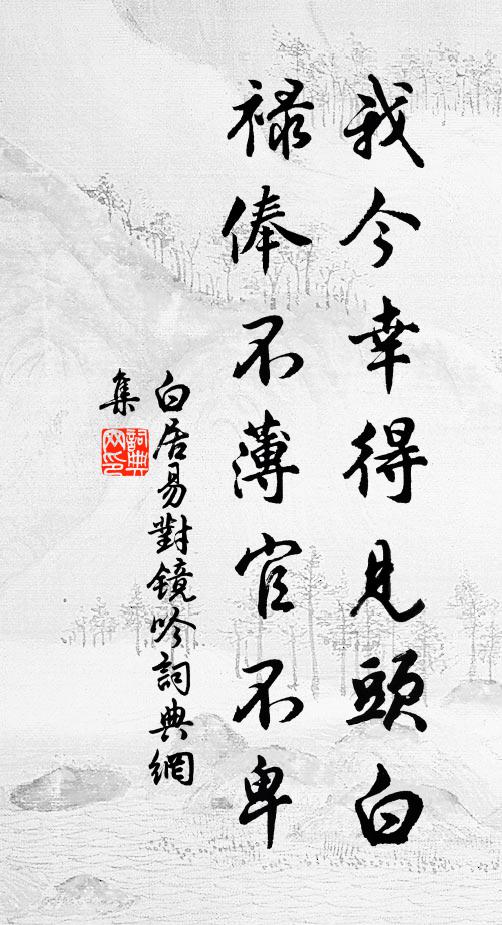 我今幸得見頭白
禄俸不薄官不卑
白居易對镜吟詞典網
集
詞典
网印